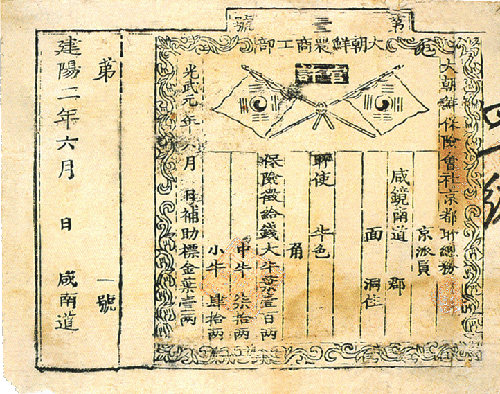 第 號
大朝鮮農商工部
官許
大朝鮮保險會社京都 總務
京派員
咸鏡南道 郡
面 洞住
牛色
角
保險徵給錢大牛葉壹百兩
中牛 柒拾兩
小牛 肆拾兩
光武元年六月 日補助標金葉壹兩
第 一號
建陽二年六月 日 咸南道